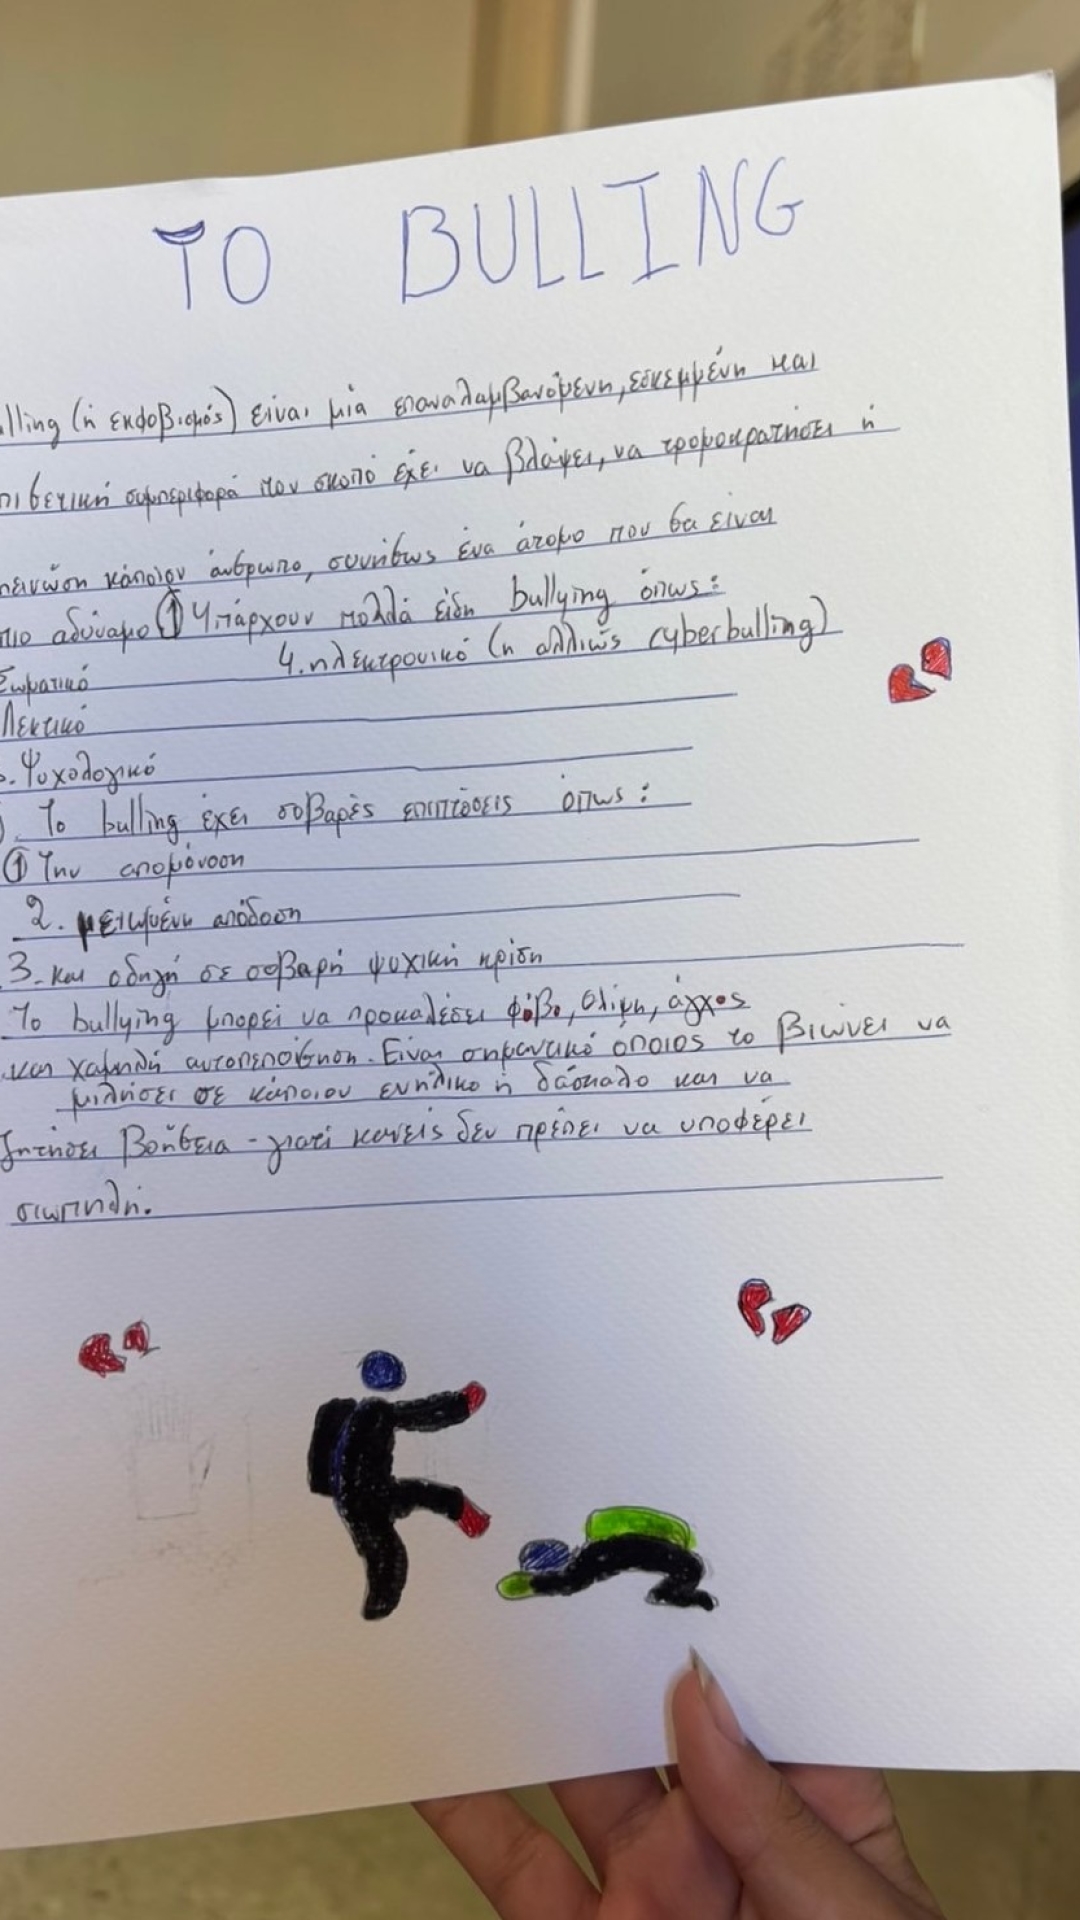 TO BULLING
lling (ή εκφοβισμός) είναι μία επαναλαμβανόμενη, εσκεμμένη και
πιθετική συμπεριφορά που σκοπό έχει να βλάψει, να τρομοκρατήσει ή
πεινώση κάποιον άνθρωπο, συνήθως ένα άτομο που θα είναι
πιο αδύναμο ① Υπάρχουν πολλά είδη bullying όπως:
Σωματικό 4. ηλεκτρονικό (η αλλιώς cyberbulling)
Λεκτικό
3. Ψυχολογικό
). Το bulling έχει σοβαρές επιπτόσεις όπως:
① Την απομόνοση
2. μειωμένη απόδοση
3. και οδηγή σε σοβαρή ψυχική κρίση
Το bullying μπορεί να προκαλέσει φόβο, θλίψη, άγχος
και χαμηλή αυτοπεποίθηση. Είναι σημαντικό όποιος το βιώνει να
μιλήσει σε κάποιον ενήλικο ή δάσκαλο και να
ζητήσει βοήθεια - γιατί κανείς δεν πρέπει να υποφέρει
σιωπηλή.